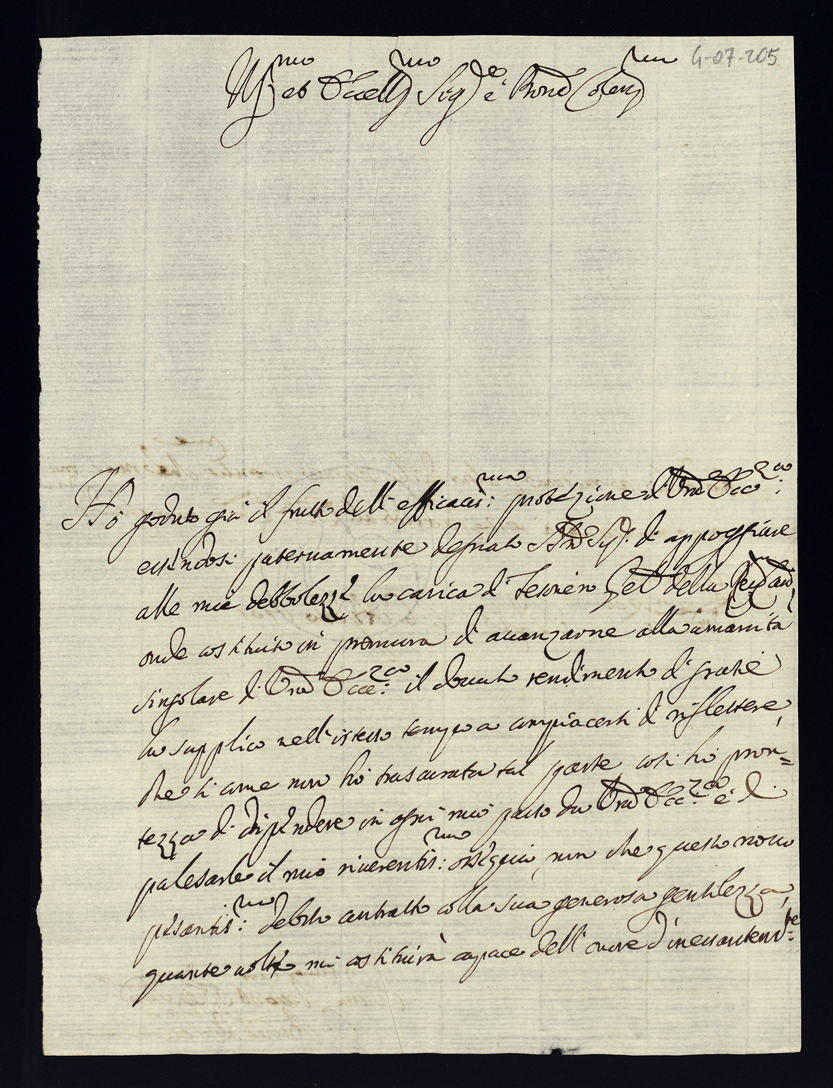 G-07-205
Ill.mo et Eccell.mo Sig.re e Prone Colen.mo
Hò goduto già il frutto dell'efficaciss:ma protezione di Vra Ecc.za:
essendosi paternamente degnato di appoggiare
alle mie debbolezze la carica di Tesorier Gñl della
onde costituito in premura di avanzarne alla umanità
singolare di Vra Ecce:za il dovuto rendimento di gratie
la supplico nell'istesso tempo a compiacersi di riflettere,
che si come non hò trascurata tal parte così hò pron=
tezza di dipendere in ogni mio passo da Vra Ecc:za e di
palesarle il mio riverentis:mo ossequio, non che questo novo
pesantis:mo debito contratto colla sua generosa gentilezza,
quante volte mi costituirà capace dell'onore d'incessantem:te